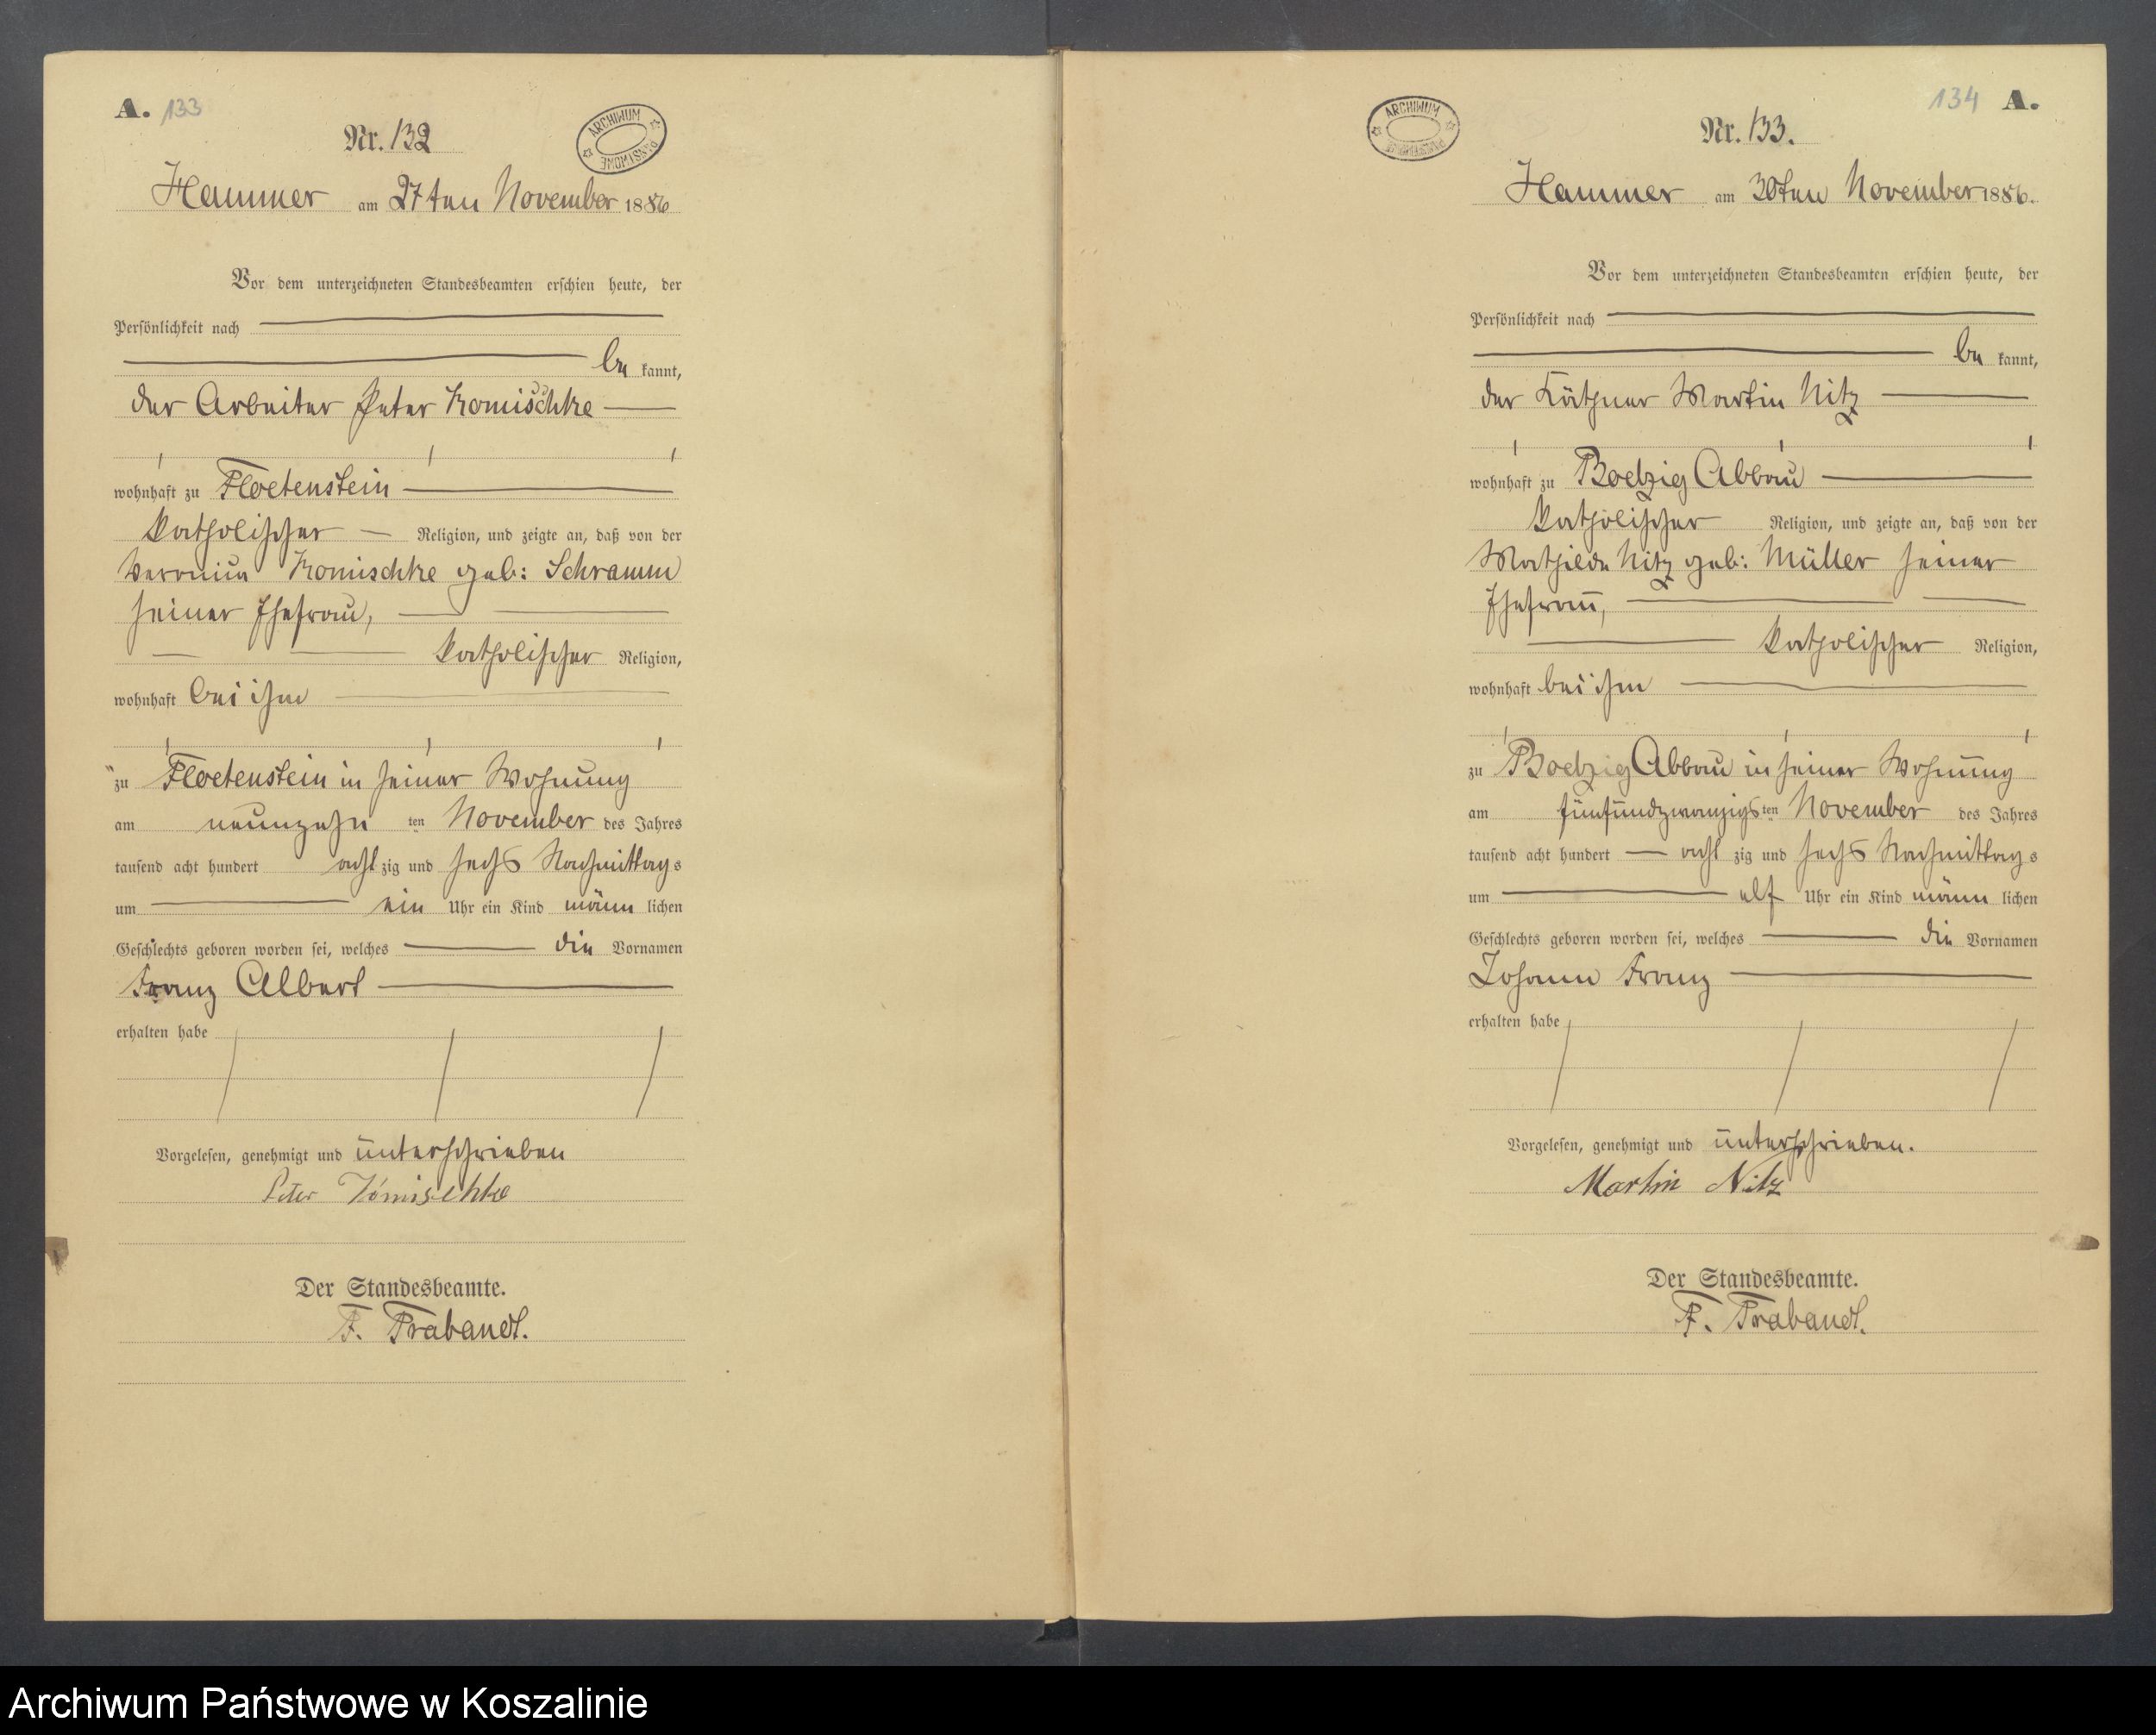 A. 133
Nr. 132
ARCHIWUM PAŃSTWOWE
Hammer am 27ten November 1886
Vor dem unterzeichneten Standesbeamten erschien heute, der
Persönlichkeit nach
be kannt,
der Arbeiter Peter Komischke
wohnhaft zu Floetenstein
katholischer Religion, und zeigte an, daß von der
Veronica Komischke geb: Schramm
seiner Ehefrau,
katholischer Religion,
wohnhaft bei ihm
zu Floetenstein in seiner Wohnung
am neunzehn ten November des Jahres
tausend acht hundert acht zig und sechs Nachmittags
um ein Uhr ein Kind männ lichen
Geschlechts geboren worden sei, welches die Vornamen
Franz Albert
erhalten habe
Vorgelesen, genehmigt und unterschrieben
Peter Komischke
Der Standesbeamte.
F. Trabandt.
134 A.
ARCHIWUM PAŃSTWOWE
Nr. 133.
Hammer am 30ten November 1886.
Vor dem unterzeichneten Standesbeamten erschien heute, der
Persönlichkeit nach
be kannt,
der Käthner Martin Nitz
wohnhaft zu Boelzig Abbau
katholischer Religion, und zeigte an, daß von der
Mathilde Nitz geb: Müller seiner
Ehefrau,
katholischer Religion,
wohnhaft bei ihm
zu Boelzig Abbau in seiner Wohnung
am fünfundzwanzigs ten November des Jahres
tausend acht hundert acht zig und sechs Nachmittags
um elf Uhr ein Kind männ lichen
Geschlechts geboren worden sei, welches die Vornamen
Johann Franz
erhalten habe
Vorgelesen, genehmigt und unterschrieben.
Martin Nitz
Der Standesbeamte.
F. Trabandt.
Archiwum Państwowe w Koszalinie